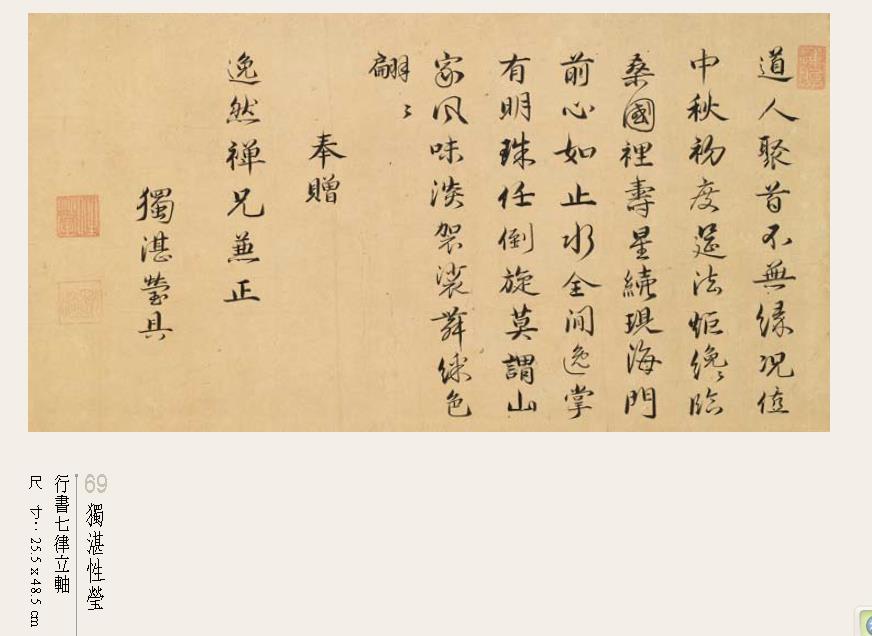 道人聚首不無緣況值
中秋初度筵法炬纔臨
桑國裡壽星續現海門
前心如止水全间逸掌
有明珠任倒旋莫謂山
家風味淡袈裟舞綵色
翩〻
奉贈
逸然禪兄兼正
獨湛瑩具
69 獨湛性瑩
行書七律立軸
尺 寸：25.5 x 48.5 cm